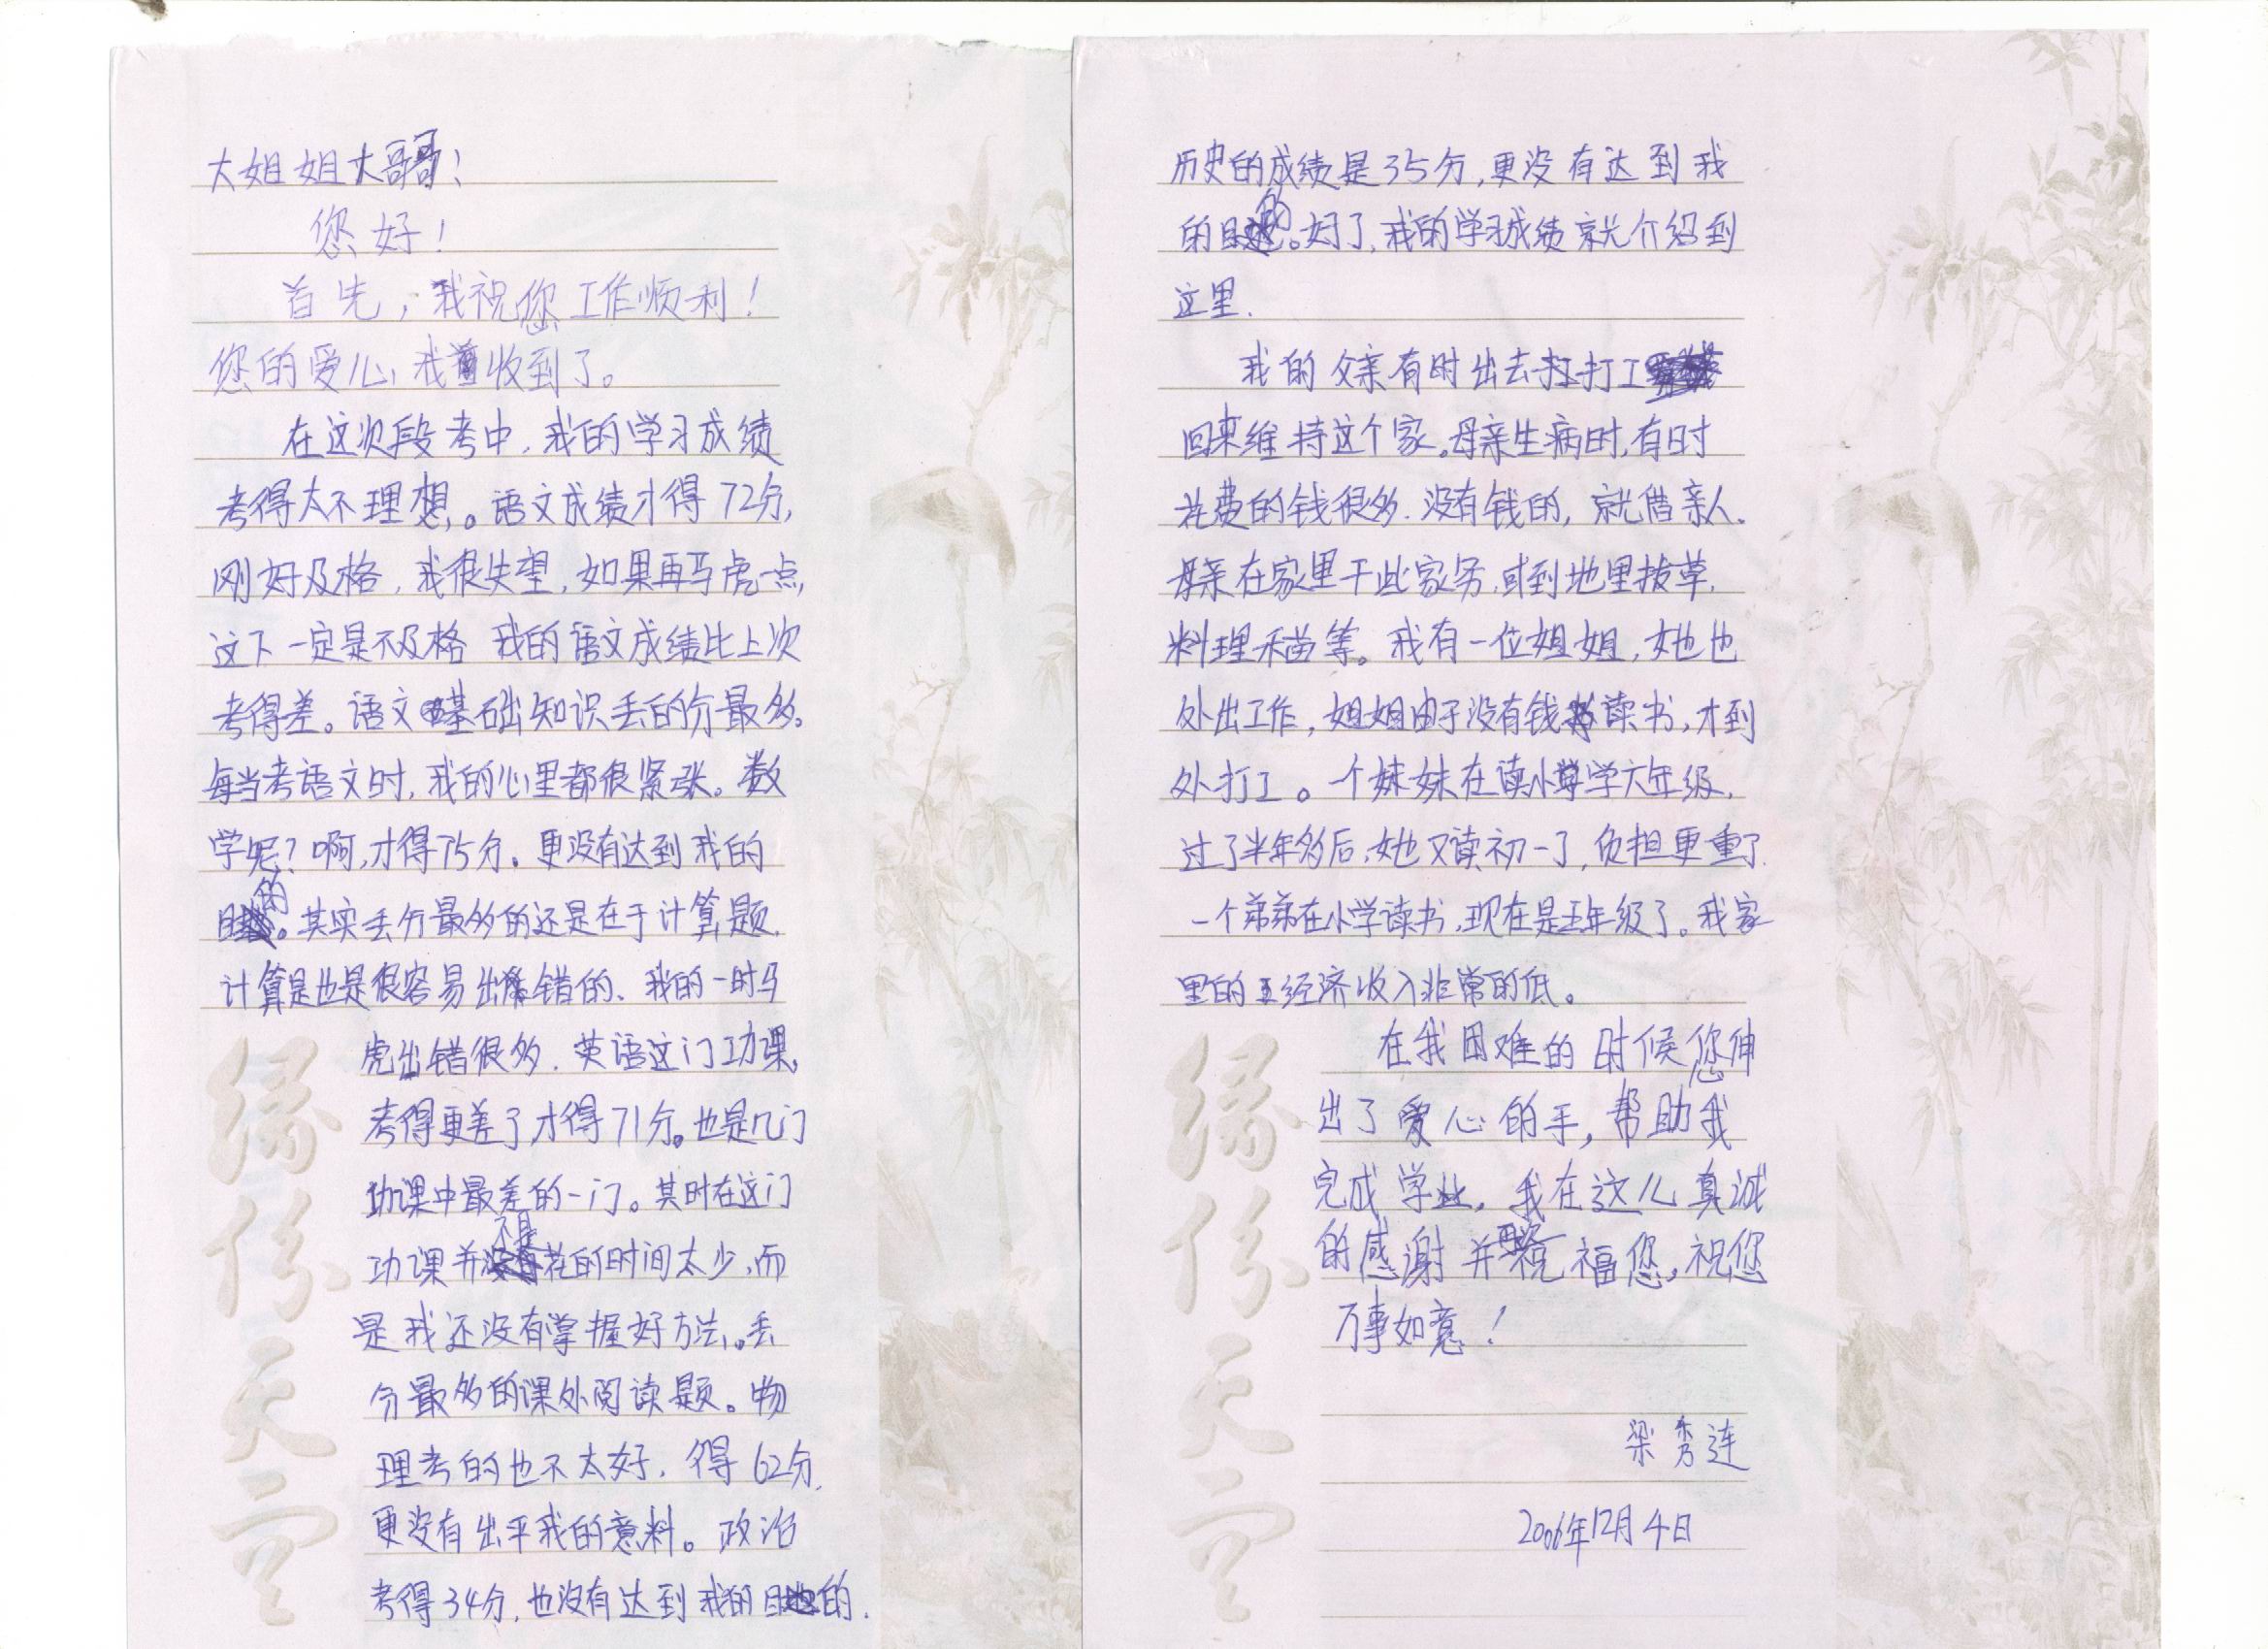 大姐姐大哥哥！
您好！
首先，我祝您工作顺利！
您的爱心，我收到了。
在这次段考中，我的学习成绩
考得太不理想。语文成绩才得72分，
刚好及格，我很失望，如果再马虎一点，
这下一定是不及格 我的语文成绩比上次
考得差。语文基础知识丢的分最多。
每当考语文时，我的心里都很紧张。数
学呢？啊，才得75分。更没有达到我的
目的。其实丢分最多的还是在于计算题.
计算是也是很容易出错的、我的一时马
虎出错很多. 英语这门功课,
考得更差了才得71分。也是几门
功课中最差的一门。其时在这门
功课并不是花的时间太少,而
是我还没有掌握好方法。丢
分最多的课外阅读题。物
理考的也不太好. 得62分.
更没有出乎我的意料。政治
考得34分,也没有达到我的目的.
历史的成绩是35分,更没有达到我
的目的。好了,我的学习成绩就介绍到
这里.
我的父亲有时出去打工
回来维持这个家。母亲生病时,有时
花费的钱很多.没有钱的,就借亲人.
母亲在家里干些家务,或到地里拔草,
料理禾苗等。我有一位姐姐,她也
外出工作,姐姐由于没有钱读书,才到
外打工。一个妹妹在读小学六年级.
过了半年多后,她又读初一了,负担更重了.
一个弟弟在小学读书,现在是五年级了。我家
里的经济收入非常的低。
在我困难的时候您伸
出了爱心的手,帮助我
完成学业,我在这儿真诚
的感谢并祝福您,祝您
万事如意！
梁秀连
2006年12月4日
缘份天空
缘份天空